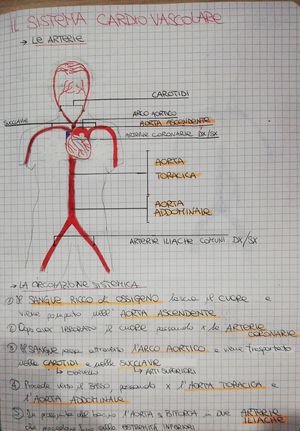 IL SISTEMA CARDIOVASCOLARE
→ LE ARTERIE
CAROTIDI
ARCO AORTICO
SUCCLAVIE
AORTA ASCENDENTE
ARTERIE CORONARIE DX/SX
AORTA
TORACICA
AORTA
ADDOMINALE
ARTERIE ILIACHE COMUNI DX/SX
→ LA CIRCOLAZIONE SISTEMICA
① Il SANGUE RICCO DI OSSIGENO lascia il CUORE e
viene pompato nell' AORTA ASCENDENTE
② Dopo aver IRRORATO il CUORE passando x le ARTERIE
CORONARIE
③ Il SANGUE passa attraverso l'ARCO AORTICO e viene trasportato
nelle CAROTIDI e nelle SUCCLAVIE
↳ CERVELLO ↳ ARTI SUPERIORI
④ Procede verso il BASSO passando x l'AORTA TORACICA e
l'AORTA ADDOMINALE
⑤ In prossimità del bacino l'AORTA si BIFORCA in due ARTERIE
ILIACHE
ESTREMITÀ INFERIORI